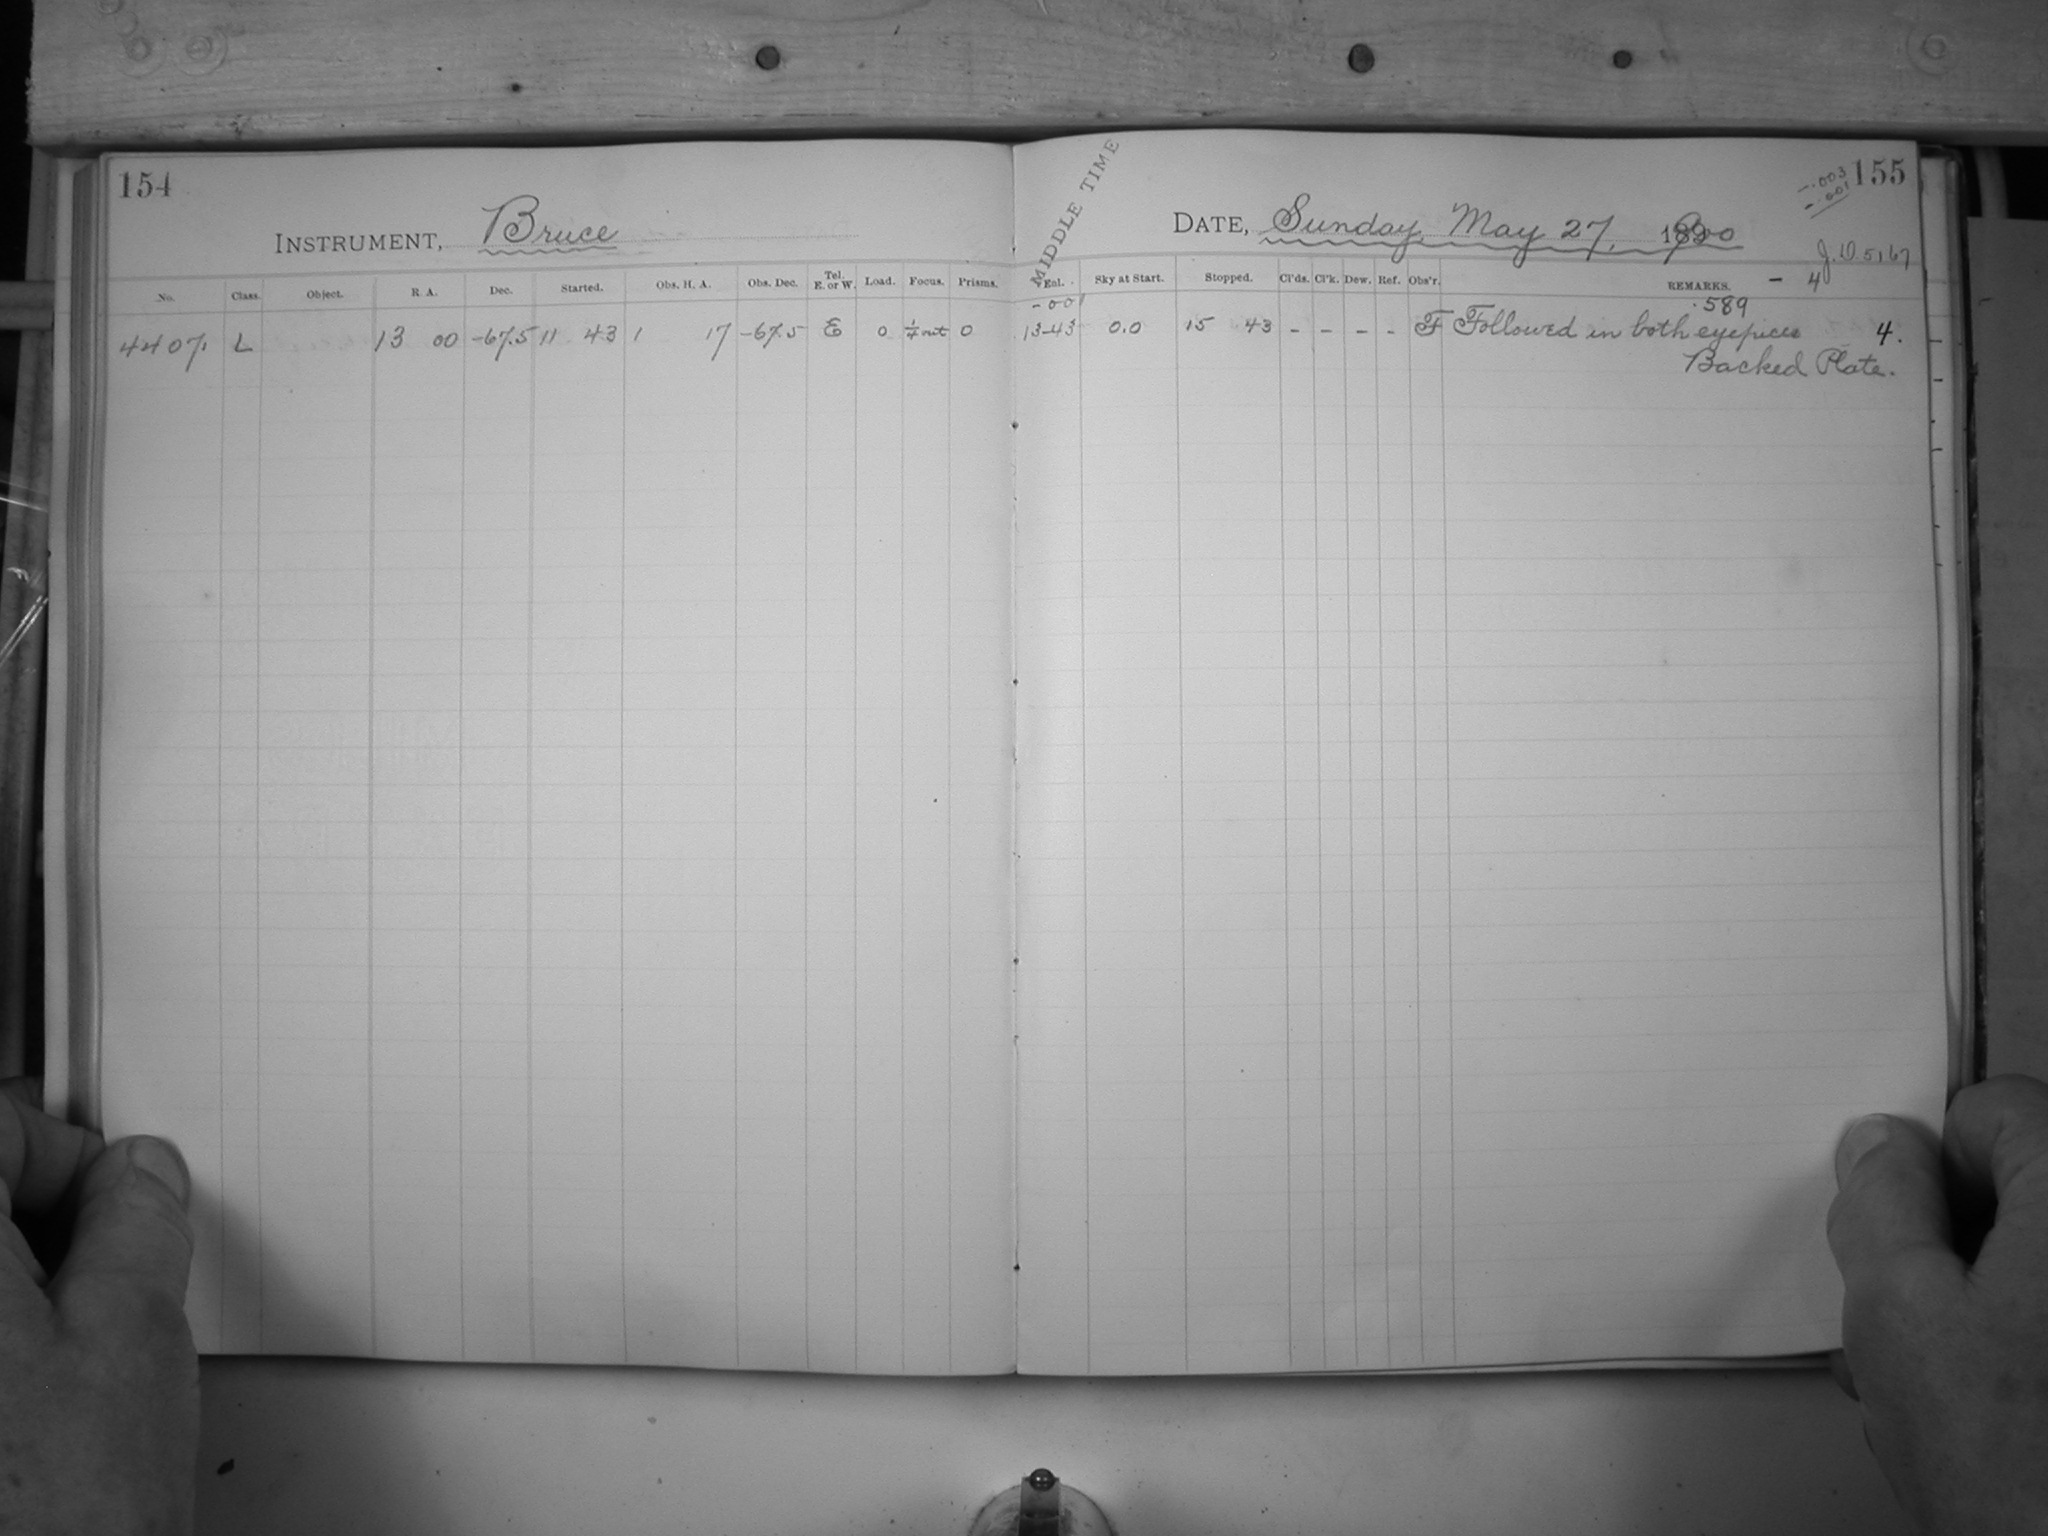 154
INSTRUMENT, Bruce
No. Class. Object. R. A. Dec. Started. Obs. H. A. Obs. Dec. Tel. E. or W. Load. Focus. Prisms.
4407. L 13 00 -67.5 11 43 1 17 -67.5 E 0 1/4 out 0
155
-.003
-.001
MIDDLE TIME
DATE, Sunday, May 27, 1900
J. D. 5167
- 4
Enl. Sky at Start. Stopped. Cl'ds. Cl'k. Dew. Ref. Obs'r. REMARKS.
-001 .589
13-43 0.0 15 43 - - - - F Followed in both eyepieces 4.
Backed Plate.